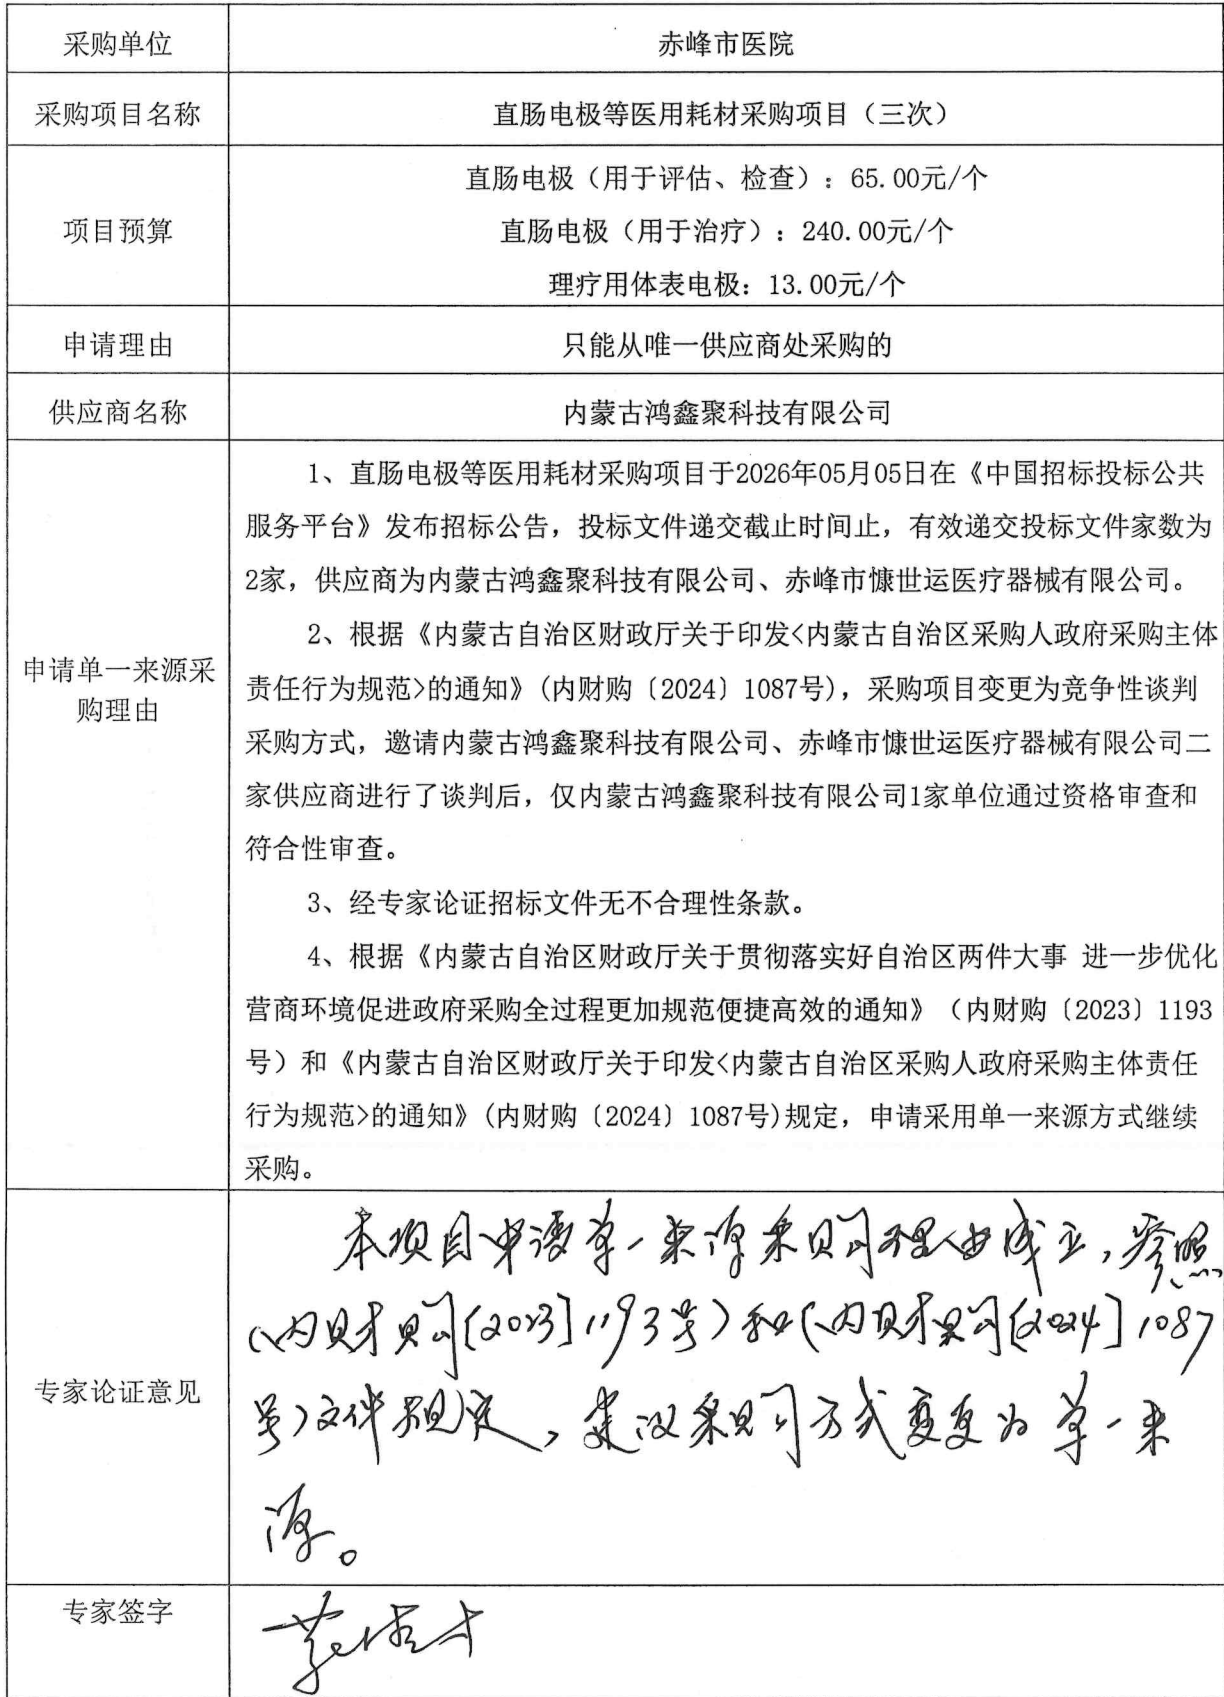 采购单位 赤峰市医院
采购项目名称 直肠电极等医用耗材采购项目（三次）
项目预算
直肠电极（用于评估、检查）：65.00元/个
直肠电极（用于治疗）：240.00元/个
理疗用体表电极：13.00元/个
申请理由 只能从唯一供应商处采购的
供应商名称 内蒙古鸿鑫聚科技有限公司
申请单一来源采
购理由
1、直肠电极等医用耗材采购项目于2026年05月05日在《中国招标投标公共
服务平台》发布招标公告，投标文件递交截止时间止，有效递交投标文件家数为
2家，供应商为内蒙古鸿鑫聚科技有限公司、赤峰市慷世运医疗器械有限公司。
2、根据《内蒙古自治区财政厅关于印发<内蒙古自治区采购人政府采购主体
责任行为规范>的通知》(内财购〔2024〕1087号)，采购项目变更为竞争性谈判
采购方式，邀请内蒙古鸿鑫聚科技有限公司、赤峰市慷世运医疗器械有限公司二
家供应商进行了谈判后，仅内蒙古鸿鑫聚科技有限公司1家单位通过资格审查和
符合性审查。
3、经专家论证招标文件无不合理性条款。
4、根据《内蒙古自治区财政厅关于贯彻落实好自治区两件大事 进一步优化
营商环境促进政府采购全过程更加规范便捷高效的通知》（内财购〔2023〕1193
号）和《内蒙古自治区财政厅关于印发<内蒙古自治区采购人政府采购主体责任
行为规范>的通知》(内财购〔2024〕1087号)规定，申请采用单一来源方式继续
采购。
专家论证意见
本项目申请单一来源采购理由成立，参照
（内财购[2023]1193号）和（内财购[2024]1087
号）文件规定，建议采购方式变更为单一来
源。
专家签字